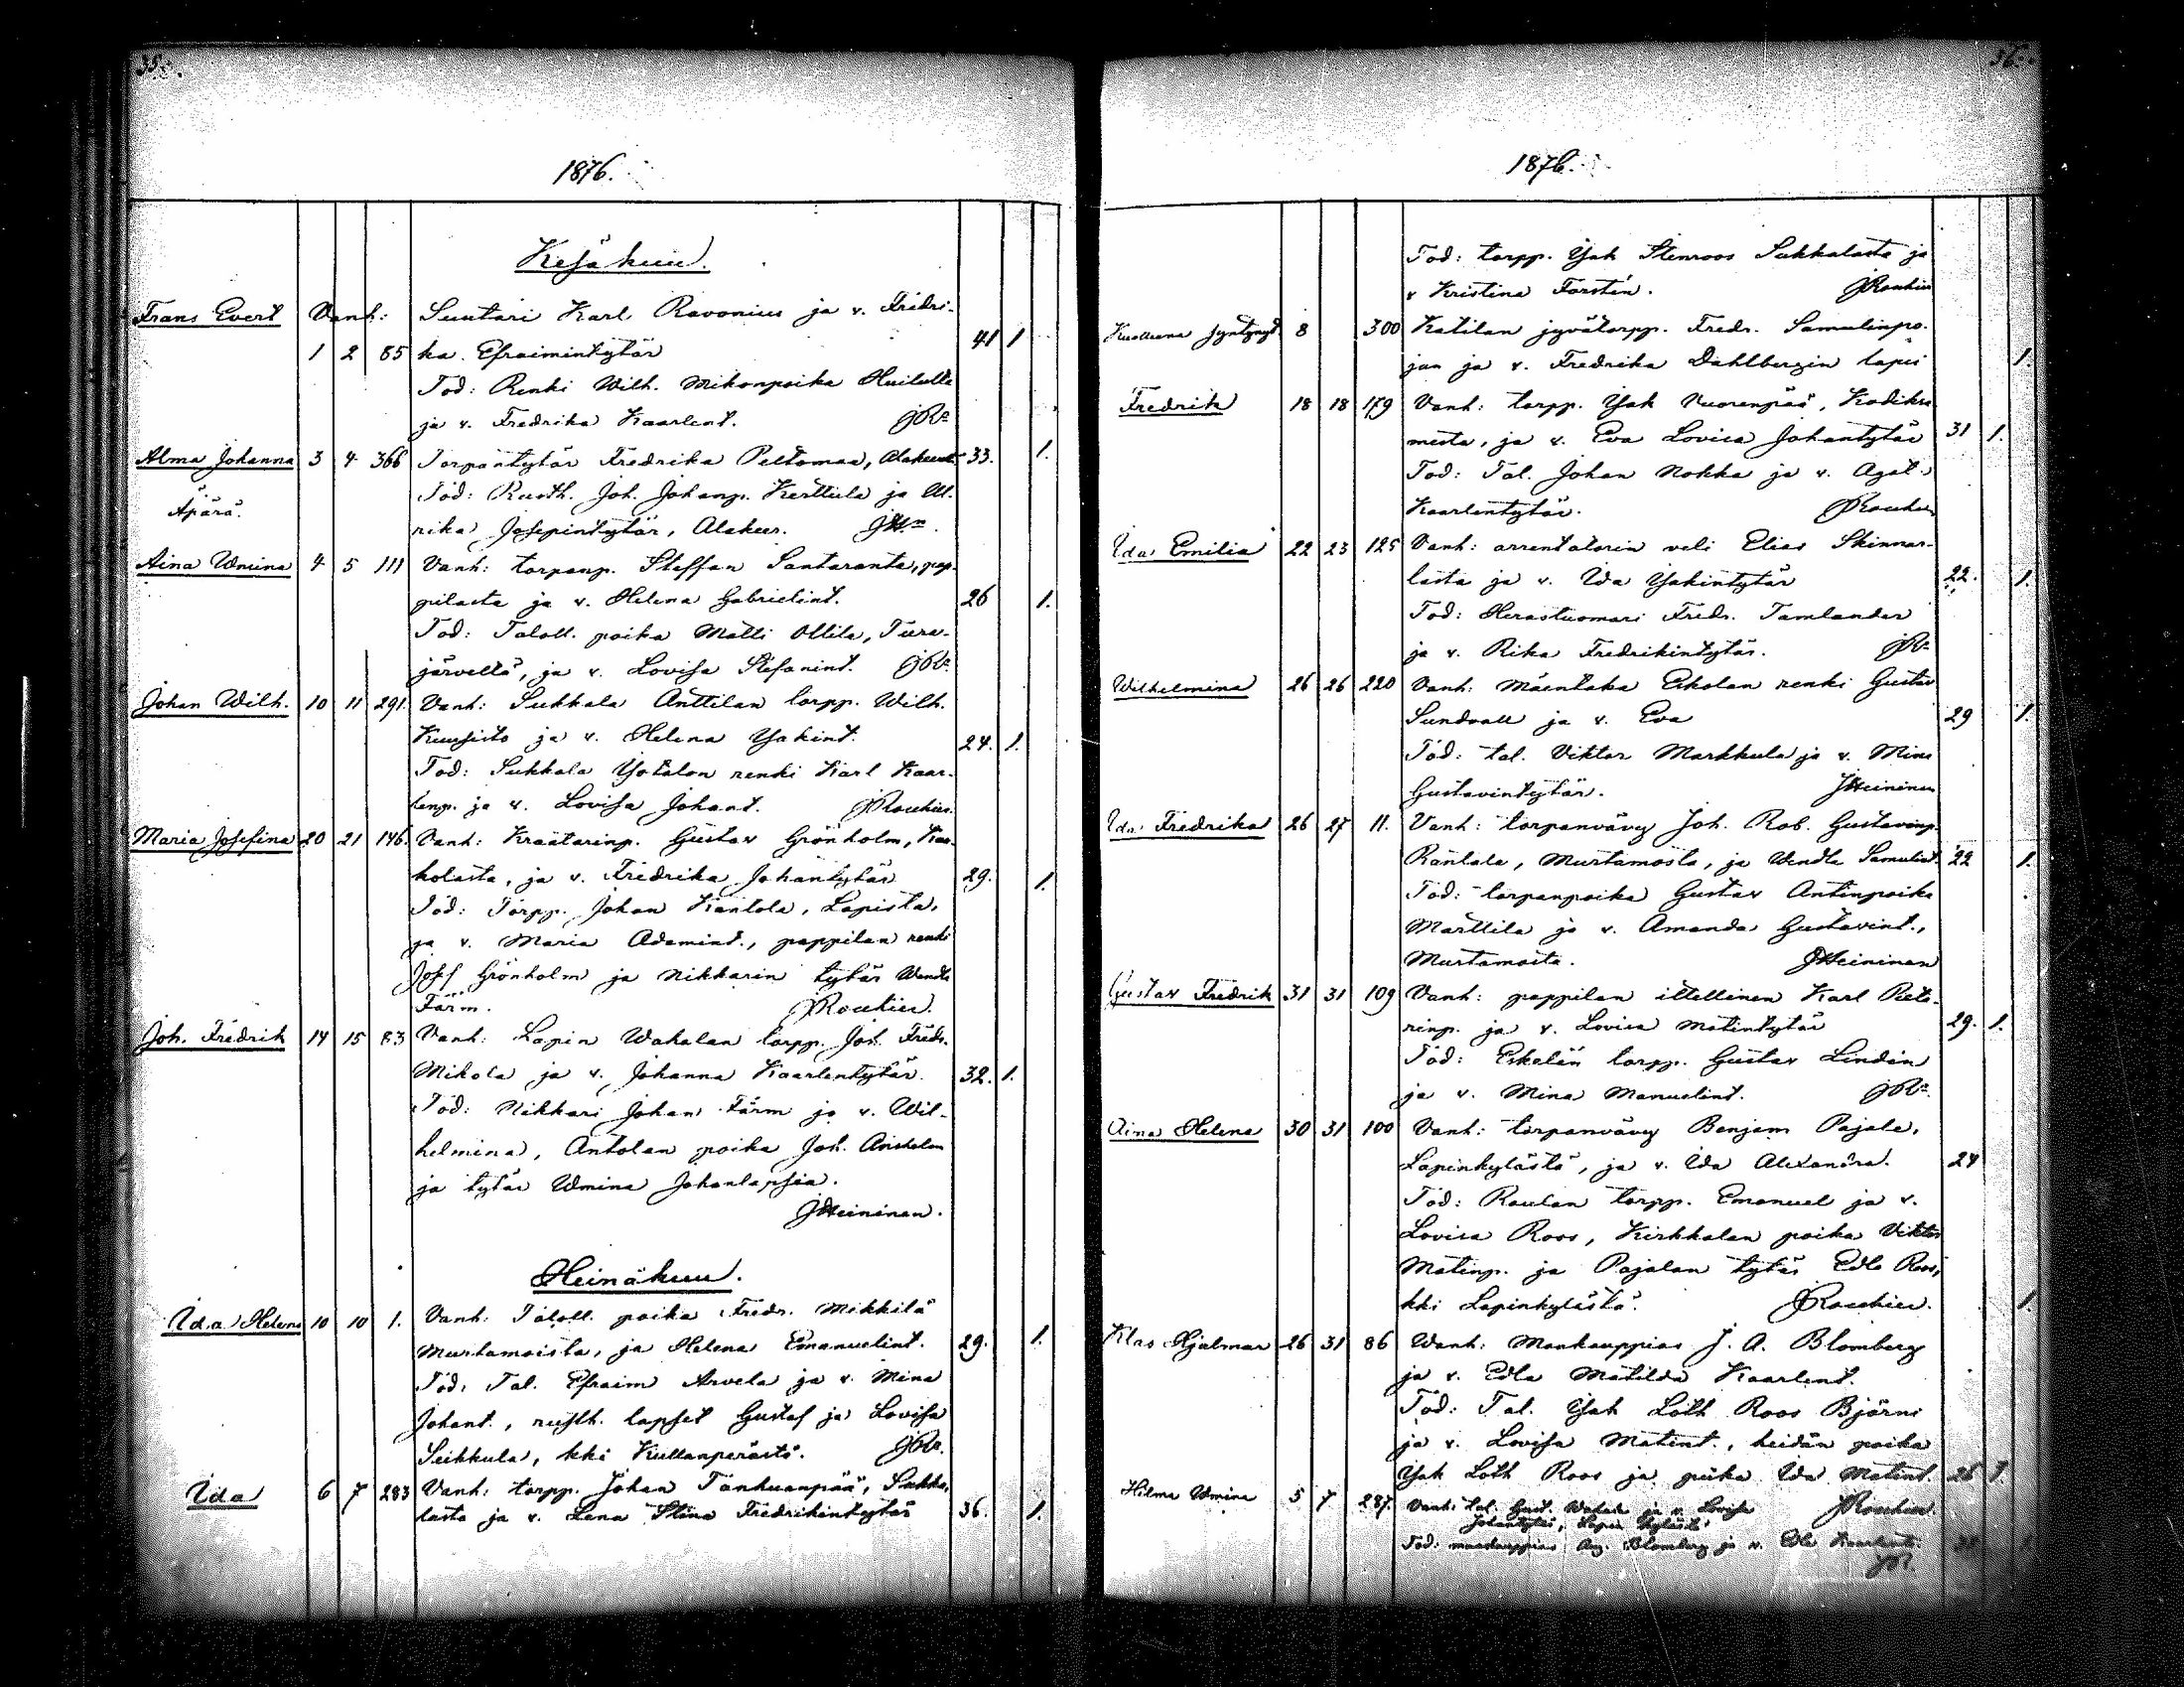 35.
1876.
Kesäkuu.
Frans Evert Vanh: Suutari Karl Ravonius ja v. Fredri-
1 2 85 ka Efraimintytär 41 1
Tod: Renki Wilh. Mikonpoika
ja v. Fredrika Kaarlent. JRs
Alma Johanna 3 4 366 Torpantytär Fredrika Peltomaa, 33. 1.
Äpärä. Tod: Rusth. Joh. Johanp. Kerttula ja Ul-
rika Josepintytär, Alakeer.
Aina Wmina 4 5 111 Vanh: torpanp. Steffan Santaranta, pap-
pilasta ja v. Helena Gabrielint. 26 1.
Tod: Taloll. poika Matti Ollila, Tura-
järveltä, ja v. Lovisa Stefanint. JRs
Johan Wilh. 10 11 291 Vanh: Sukkala Anttilan torpp. Wilh.
Kuusisto ja v. Helena Yrkint. 24. 1.
Tod: Sukkala Yrkilan renki Karl Kaar-
lenp. ja v. Lovisa Johant. JRouhier.
Maria Josefina 20 21 146. Vanh: Kraatarinp. Gustav Grönholm,
kolasta, ja v. Fredrika Johantytär 29. 1.
Tod: Torpp. Johan Kantola, Lapista,
ja v. Maria Adamint., pappilan renki
Josef Grönholm ja Nikkarin tytär Wendla
Färm. JRouhier.
Joh. Fredrik 14 15 83 Vanh: Lapin Wahalan torpp. Joh. Fredr.
Mikola ja v. Johanna Kaarlentytär. 32. 1.
Tod: Nikkari Johan Färm ja v. Wil-
helmina, Antolan poika Joh.
ja tytär Wmina Johanlapsia.
JHeininen.
Heinäkuu.
Ida Helena 10 10 1. Vanh: Taloll. poika Fredr. Mikkilä
Murtamoista, ja Helena Emanuelint. 29. 1.
Tod: Tal. Efraim Arvela ja v. Mina
Johant., rusth. lapset Gustaf ja Lovisa
Seikkula, kki Kullanperästä. JRs.
Ida 6 7 283 Vanh: torpp. Johan Tankuanpää, Sukka-
lasta ja v. Lena Stina Fredrikintytär 36. 1.
36.
1876.
Tod: torpp. Isak Stenroos Sukkalasta ja
v Kristina Forstén. JRouhier
Kuolleena syntynyt 8 300 Katilan jyvätorpp. Fredr. Samulinpo-
jan ja v. Fredrika Dahlbergin lapsi 1.
Fredrik 18 18 179 Vanh: torpp. Isak Vuorenpää, Kodiksa-
mesta, ja v. Eva Lovisa Johantytär 31 1.
Tod: Tal. Johan Nokka ja v. Agat.
Kaarlentytär. JRouhier
Ida Emilia 22 23 125 Vanh: arrentatorin veli Elias Skinnar-
lasta ja v. Ida Isakintytär 22. 1.
Tod: Herastuomari Fredr. Tamlander
ja v. Rika Fredrikintytär. JRs
Wilhelmina 26 26 220 Vanh: Mäentaka Eskolan renki Gustav
Sundvall ja v. Eva 29 1.
Tod: tal. Viktor Markkula ja v. Mina
Gustavintytär. JHeininen
Ida Fredrika 26 27 11. Vanh: torpanvävy Joh. Rob. Gustavinp.
Rantala, Murtamosta, ja Wendla Samulint. 22 1.
Tod: torpanpoika Gustav Antinpoika
Marttila ja v. Amanda Gustavint.,
Murtamoista. JHeininen
Gustav Fredrik 31 31 109 Vanh: pappilan itellinen Karl Pieta-
rinp. ja v. Lovisa Matintytär 29. 1.
Tod: Eskolan torpp. Gustav Lindén
ja v. Mina Manuelint. JRs.
Aina Helena 30 31 100 Vanh: torpanvävy Benjam Pajala,
Lapinkylästä, ja v. Ida Alexandra. 24
Tod: Raulan torpp. Emanuel ja v.
Lovisa Roos, Kirkkalan poika Viktor
Matinp. ja Pajalan tytär Edla Roos,
kki Lapinkylästä. JRouhier. 1
Klas Hjalmar 26 31 86 Wanh: Maakauppias J. A. Blomberg
ja v. Edla Matilda Kaarlent.
Tod: Tal. Isak Loth Roos Björni
ja v. Lovisa Matint., heidän poika
Isak Loth Roos ja piika Ida Matint. 26 1.
Hilma Wmina 5 7 287. Vanh: tal. Gust. Wahala ja v. Lovisa JRouhier.
Johantytär, Lapin kylästä
Tod: maakauppias Aug. Blomberg ja v. Edla Kaarlent.
JR.